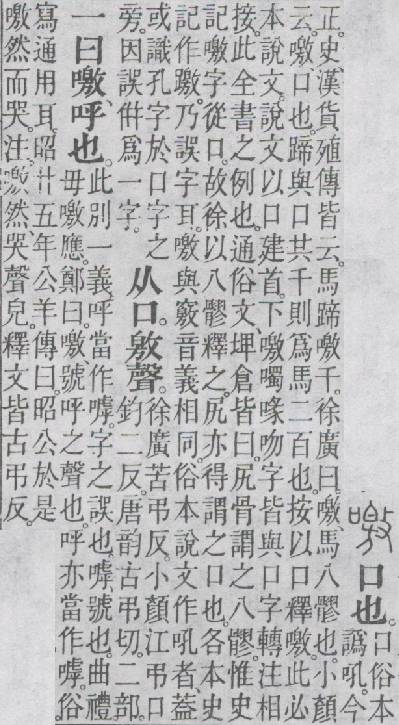 噭 口也。
口俗本
譌吼。今
正。史漢貨殖傳皆云。馬蹄噭千。徐廣曰。噭、馬八髎也。小顏
云。噭、口也。蹄與口共千。則爲馬二百也。按以口釋噭。此必
本說文。說文以口建首。下噭噣喙吻字皆與口字轉注相
接。此全書之例也。通俗文、埤倉皆曰。尻骨謂之八髎。惟史
記噭字從口。故徐以八髎釋之。尻亦得謂之口也。各本史
記作躈、乃誤字耳。噭與竅音義相同。俗本說文作吼者、蓋
或識孔字於口字之
旁。因誤倂爲一字。
从口。敫聲。
徐廣苦弔反。小顏江弔口
釣二反。唐韵古弔切。二部。
一曰噭、呼也。
此別一義。呼當作嘑。字之誤也。嘑、號也。曲禮
毋噭應。鄭曰。噭、號呼之聲也。呼亦當作嘑。俗
寫通用耳。昭廿五年公羊傳曰。昭公於是
噭然而哭。注。噭然、哭聲皃。釋文皆古弔反。